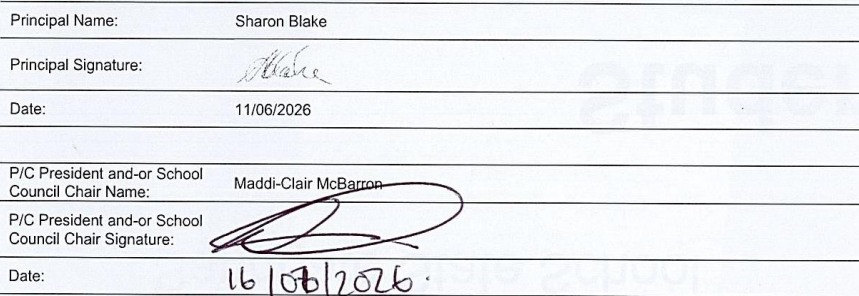 Principal Name: Sharon Blake
Principal Signature:
Date: 11/06/2026
P/C President and-or School
Council Chair Name: Maddi-Clair McBarron
P/C President and-or School
Council Chair Signature:
Date: 16/06/2026.